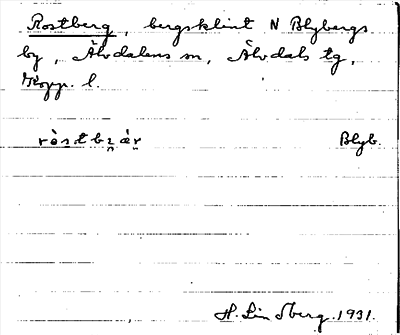 Rostberg, bergsklint N Blybergs
by, Älvdalens sn, Älvdals tg,
Kopp. l.
Blyb.
H. Lindberg. 1931.